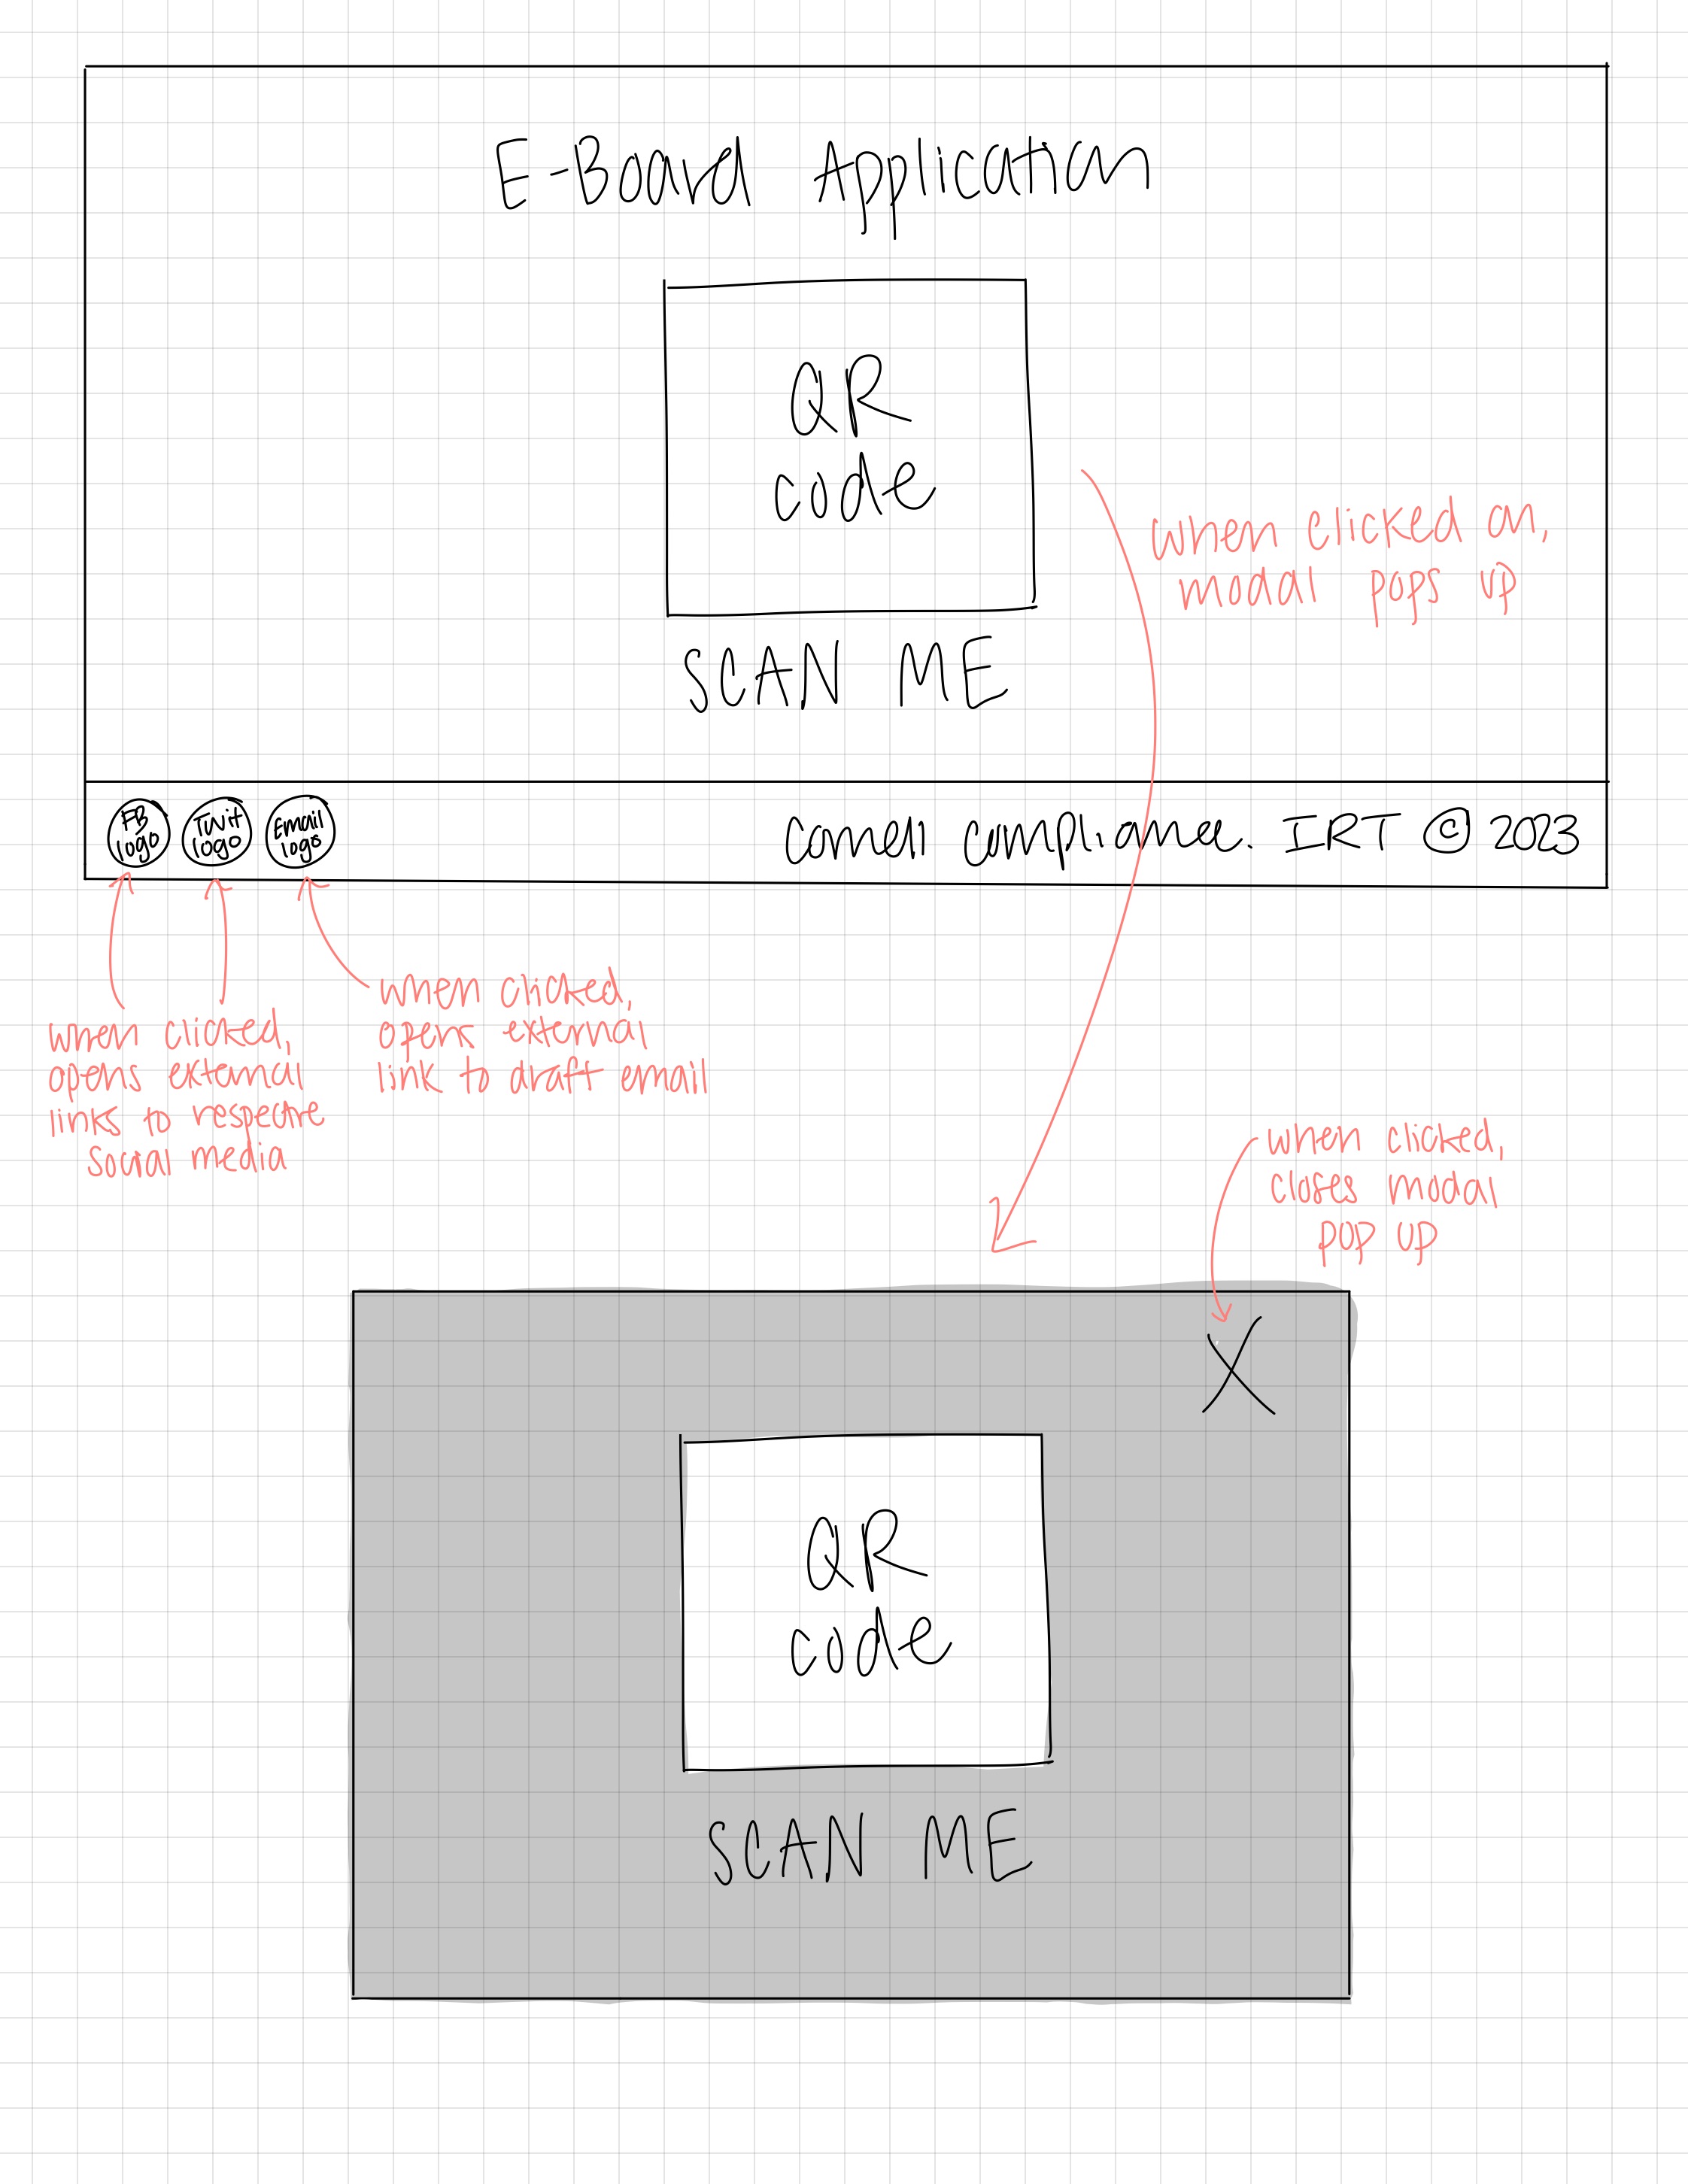 E-Board Application
QR
code
SCAN ME
when clicked on,
modal pops up
FB
logo
Twit
logo
Email
logo
Cornell Compliance. IRT © 2023
when clicked,
opens external
links to respective
social media
when clicked,
opens external
link to draft email
when clicked,
closes modal
pop up
X
QR
code
SCAN ME